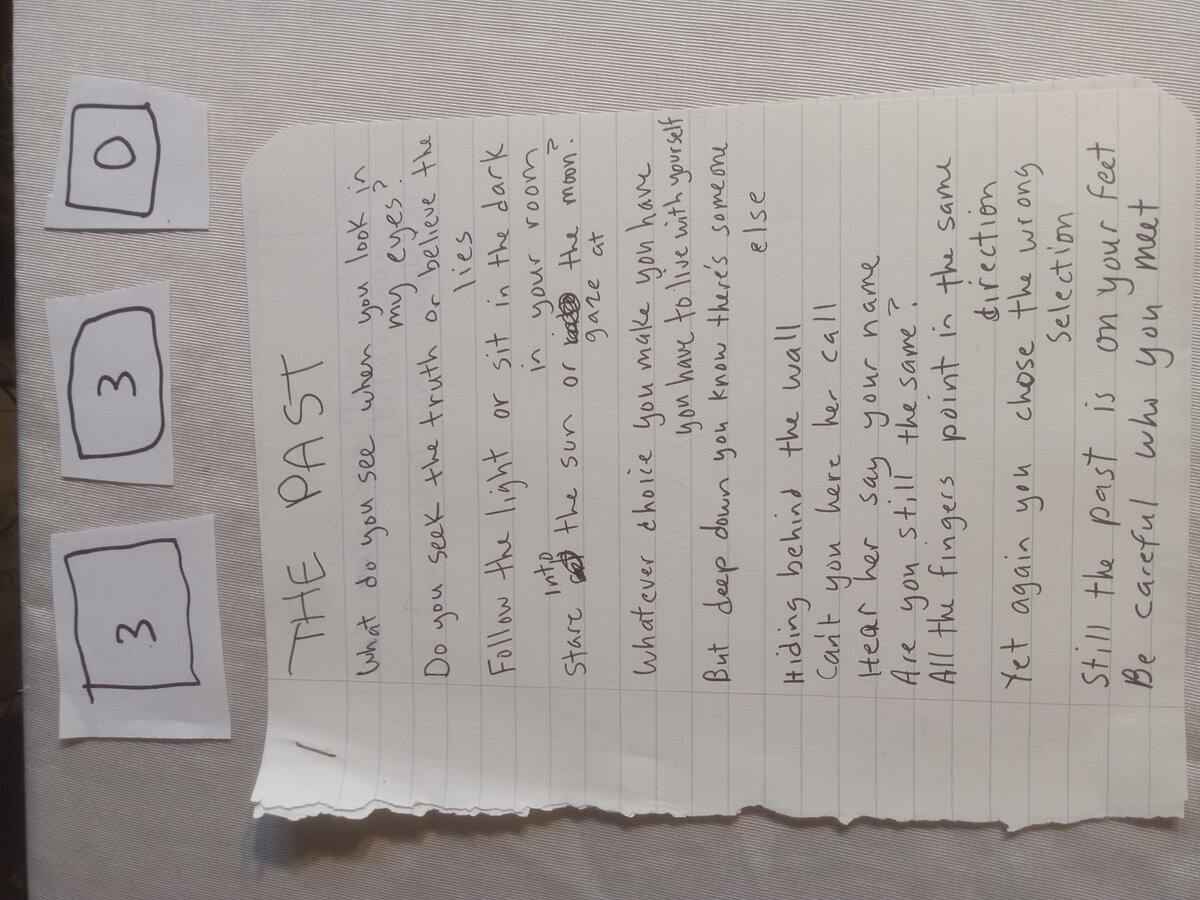 3 3 0
THE PAST
What do you see when you look in
my eyes?
Do you seek the truth or believe the
lies
Follow the light or sit in the dark
in your room
Stare into the sun or gaze at the moon?
Whatever choice you make you have
you have to live with yourself
But deep down you know there's someone
else
Hiding behind the wall
Can't you here her call
Hear her say your name
Are you still the same?
All the fingers point in the same
direction
Yet again you chose the wrong
selection
Still the past is on your feet
Be careful who you meet